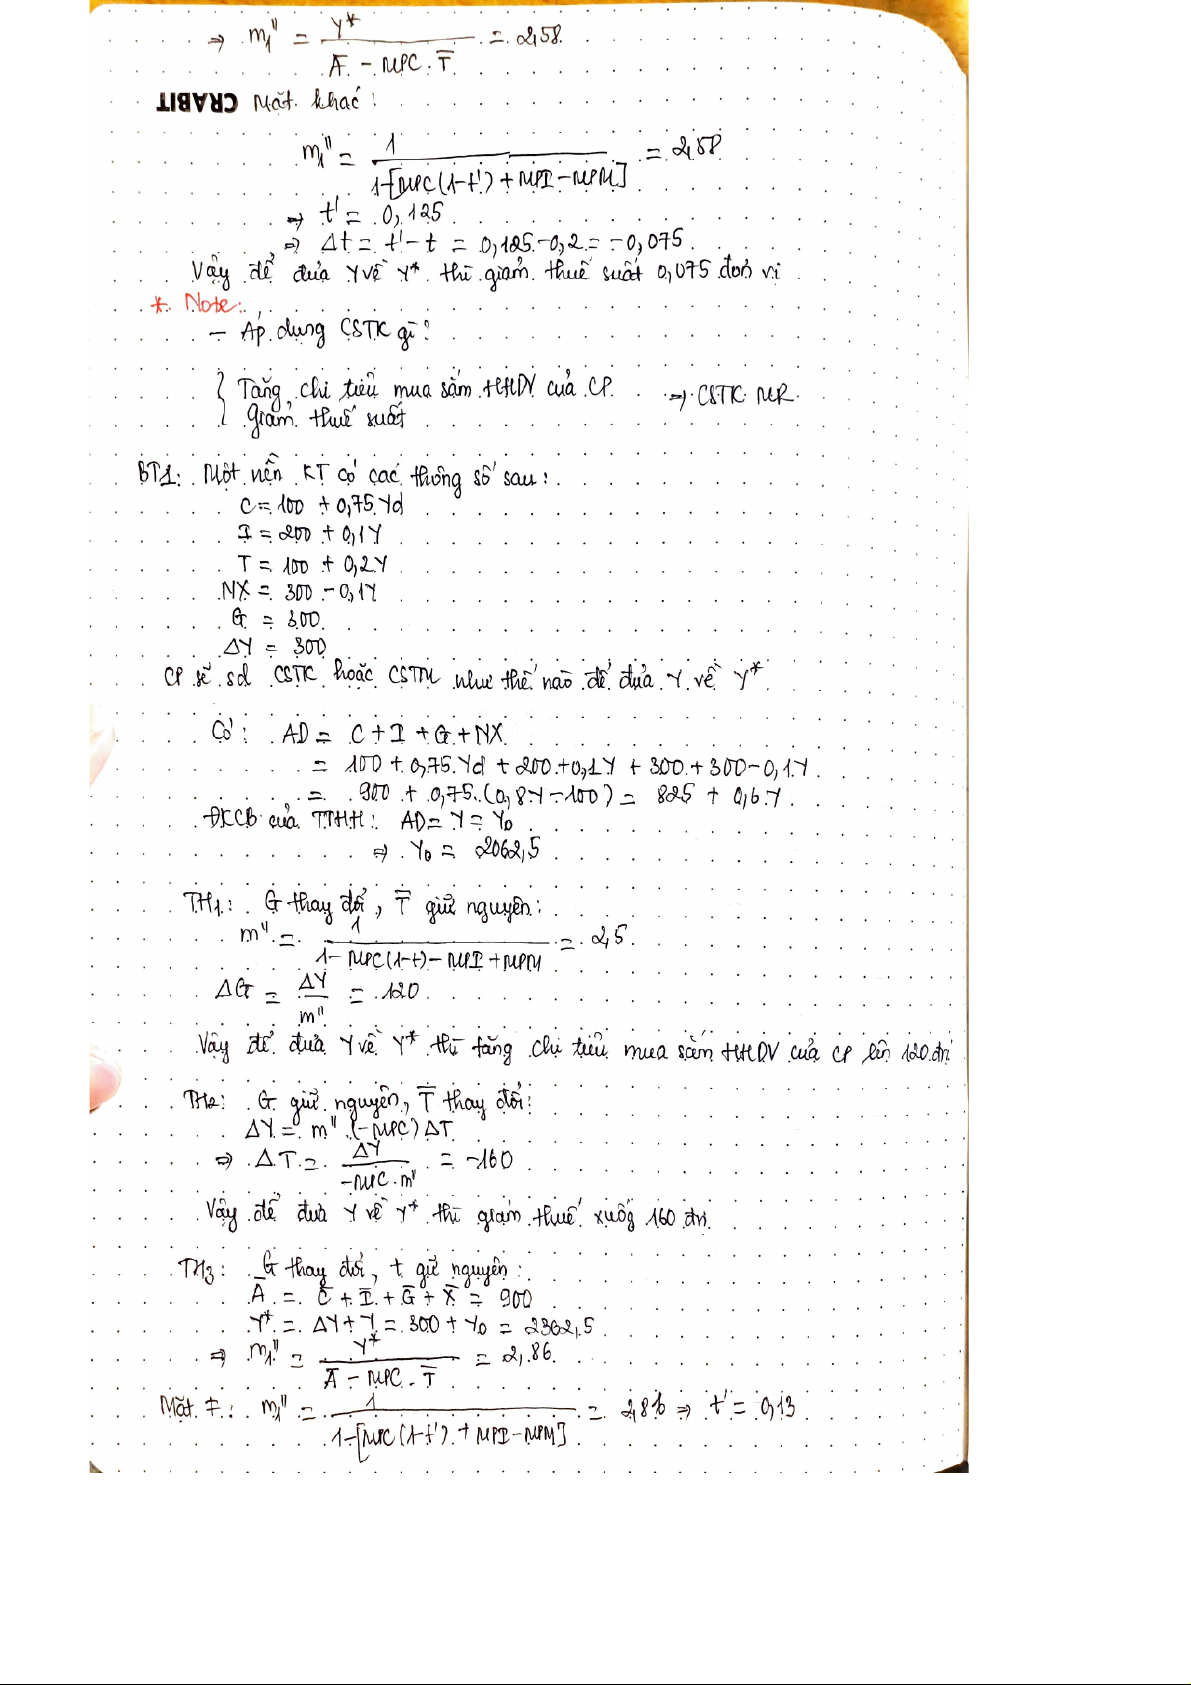 ⇒ m₁'' = Y* / (Ā - MPC. T̄) = 2,58
CRABIT Mặt khác:
m₁'' = 1 / (1-[MPC(1-t') + MPI - MPM]) = 2,58
⇒ t' = 0,125
⇒ Δt = t' - t = 0,125 - 0,2 = -0,075
Vậy để đưa Y về Y* thì giảm thuế suất 0,075 đơn vị
* Note:
- Áp dụng CSTK gì?
{ Tăng chi tiêu mua sắm HHDV của CP ⇒ CSTK MR
Giảm thuế suất
BT1: Một nền KT có các thông số sau:
C = 100 + 0,75Yd
I = 200 + 0,1Y
T = 100 + 0,2Y
NX = 300 - 0,1Y
G = 300
ΔY = 300
CP sẽ sd CSTK hoặc CSTM như thế nào để đưa Y về Y*
Có: AD = C + I + G + NX
= 100 + 0,75.Yd + 200 + 0,1Y + 300 + 300 - 0,1Y
= 900 + 0,75.(0,8Y - 100) = 825 + 0,6Y
ĐKCB của TTHH: AD = Y = Y₀
⇒ Y₀ = 2062,5
TH1: G thay đổi, T̄ giữ nguyên:
m'' = 1 / (1 - MPC(1-t) - MPI + MPM) = 2,5
ΔG = ΔY / m'' = 120
Vậy để đưa Y về Y* thì tăng chi tiêu mua sắm HHDV của CP lên 120 đvị
TH2: G giữ nguyên, T̄ thay đổi:
ΔY = m''.(-MPC)ΔT
⇒ ΔT = ΔY / (-MPC.m'') = -160
Vậy để đưa Y về Y* thì giảm thuế xuốg 160 đvị
TH3: G thay đổi, t giữ nguyên:
Ā = C̄ + Ī + Ḡ + X̄ = 900
Y* = ΔY + Y = 300 + Y₀ = 2362,5
⇒ m₁'' = Y* / (Ā - MPC. T̄) = 2,86
Mặt ≠: m₁'' = 1 / (1-[MPC(1-t') + MPI - MPM]) = 2,86 ⇒ t' = 0,13